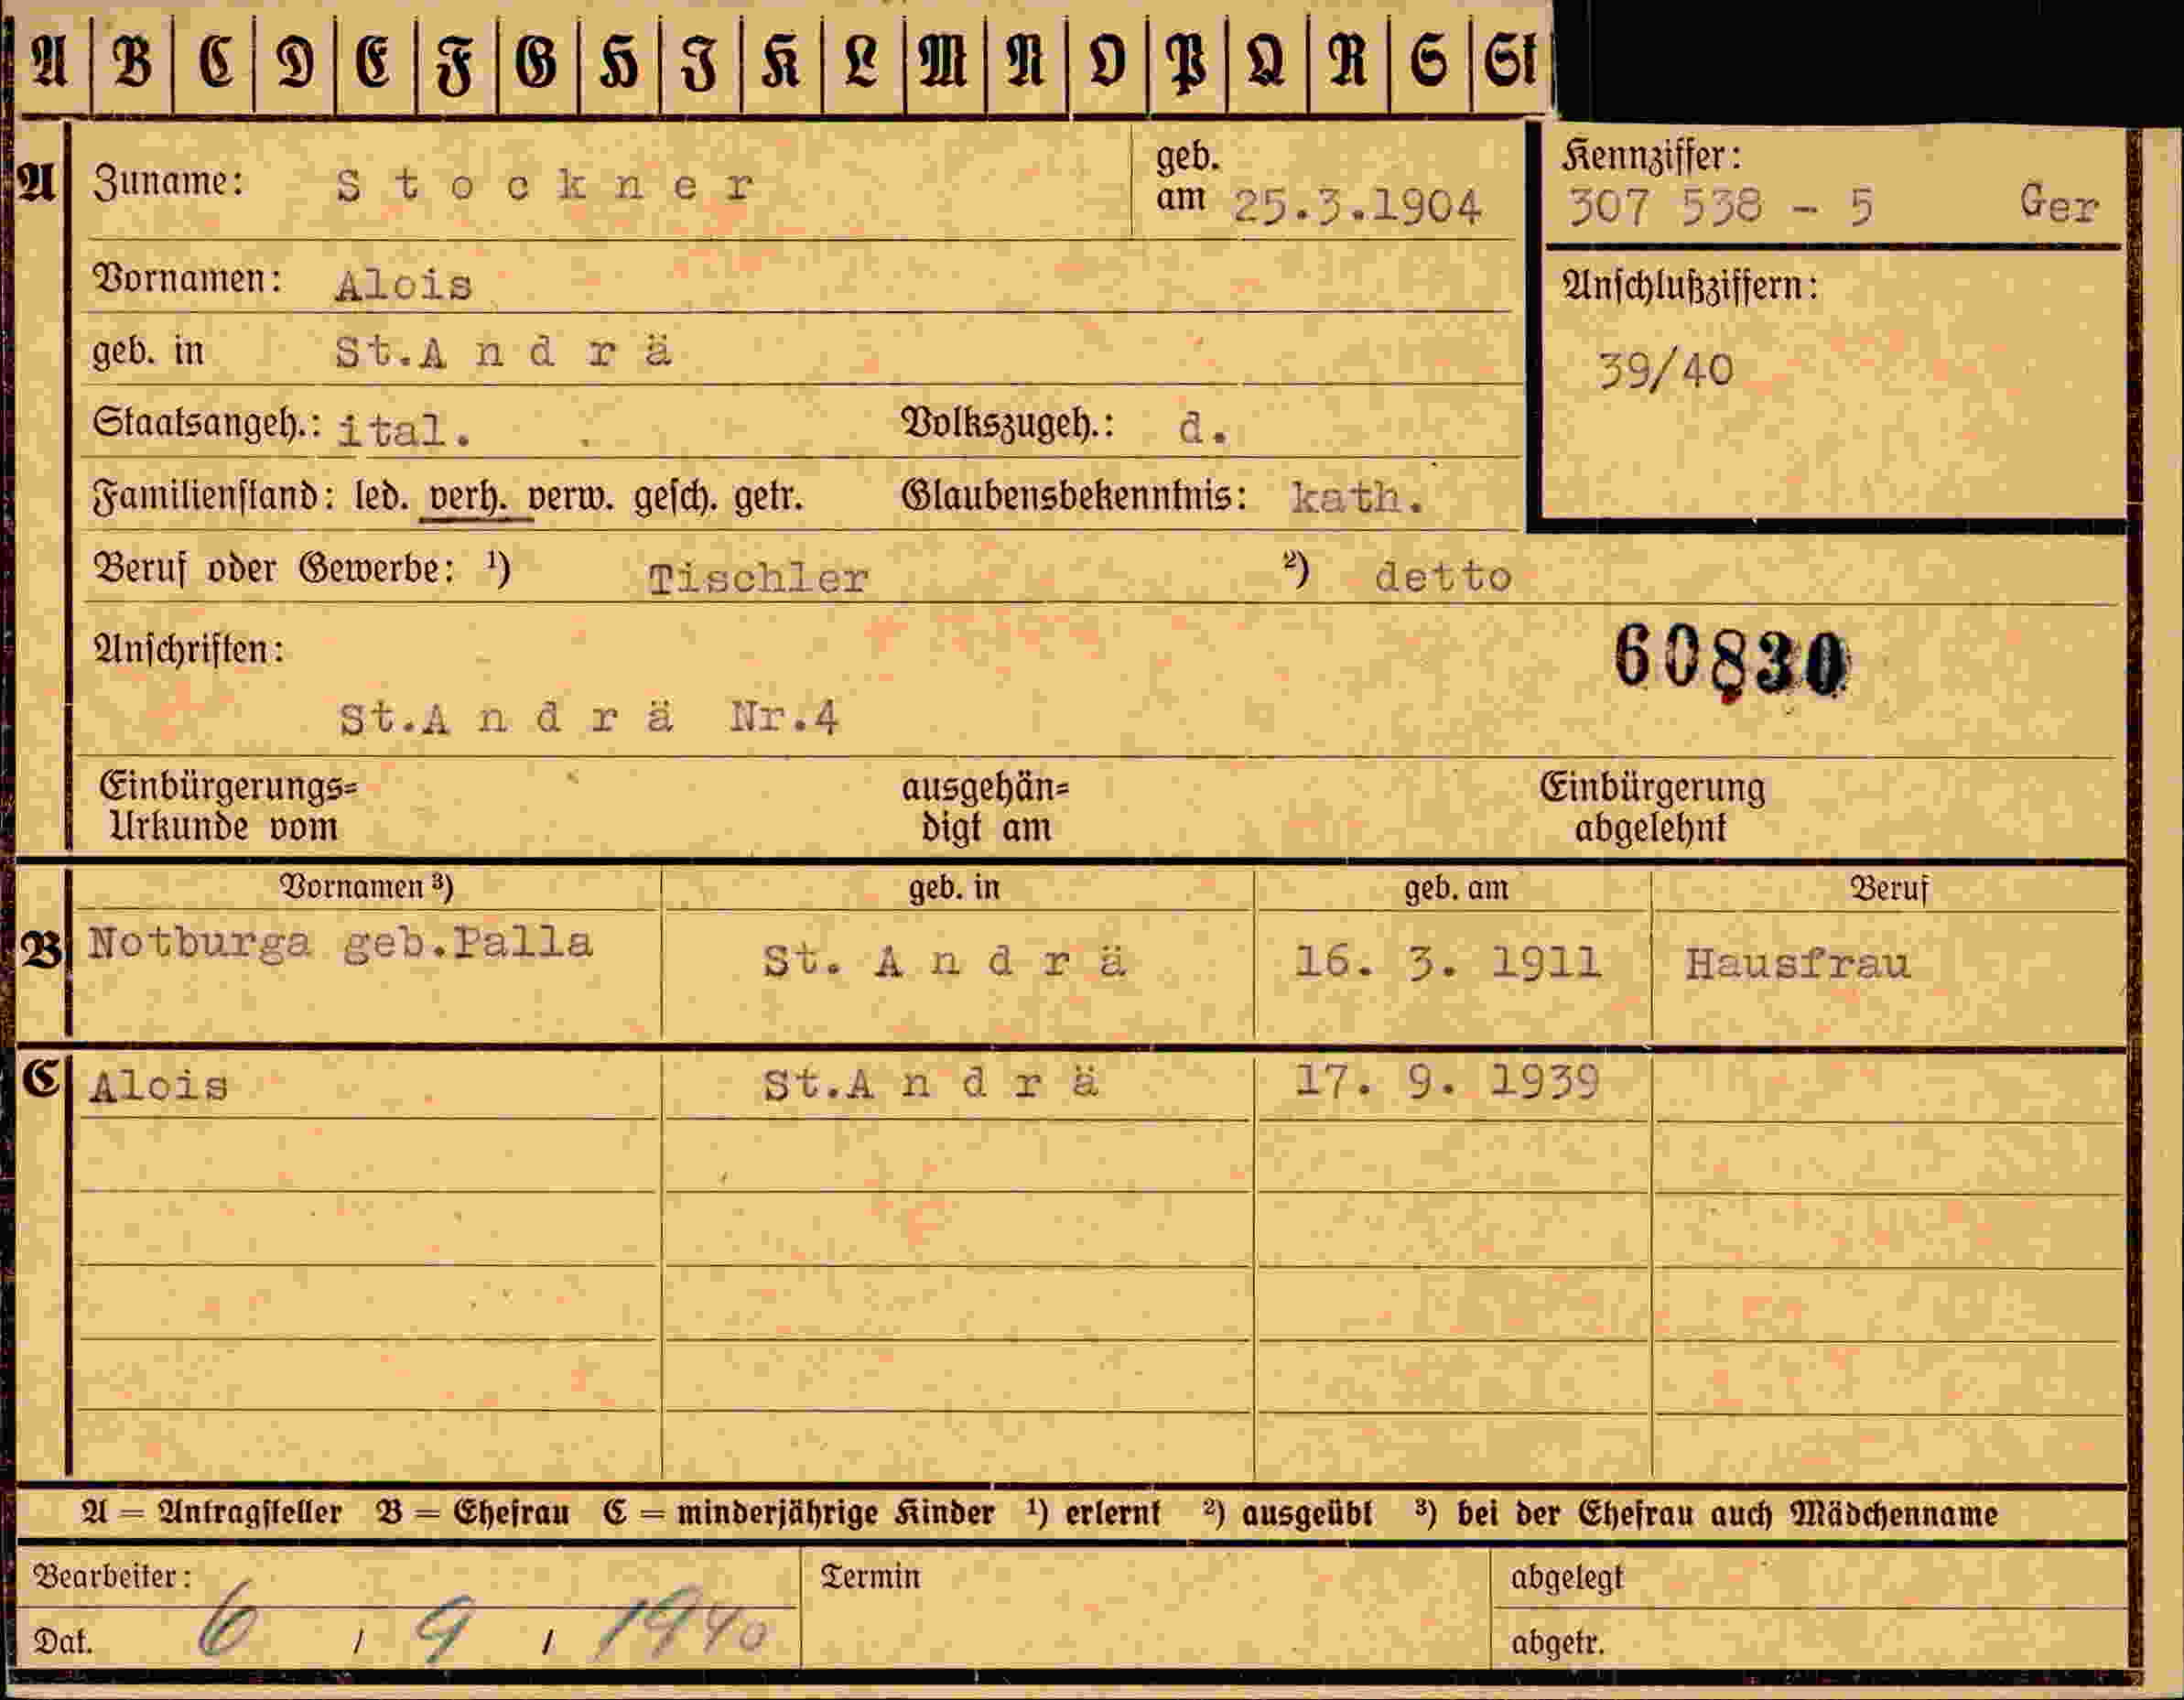 A B C D E F G H J K L M N O P Q R S St
A Zuname: Stockner geb. am 25.3.1904
Kennziffer:
307 538 - 5 Ger
Vornamen: Alois
Anschlußziffern:
39/40
geb. in St.Andrä
Staatsangeh.: ital. Volkszugeh.: d.
Familienstand: led. verh. verw. gesch. getr. Glaubensbekenntnis: kath.
Beruf oder Gewerbe: ¹) Tischler ²) detto
Anschriften:
60830
St.Andrä Nr.4
Einbürgerungs= ausgehän= Einbürgerung
Urkunde vom digt am abgelehnt
Vornamen ³) geb. in geb. am Beruf
B Notburga geb.Palla St. Andrä 16. 3. 1911 Hausfrau
C Alois St.Andrä 17. 9. 1939
A = Antragsteller B = Ehefrau C = minderjährige Kinder ¹) erlernt ²) ausgeübt ³) bei der Ehefrau auch Mädchenname
Bearbeiter: Termin abgelegt
Dat. 6 / 9 / 1940 abgetr.